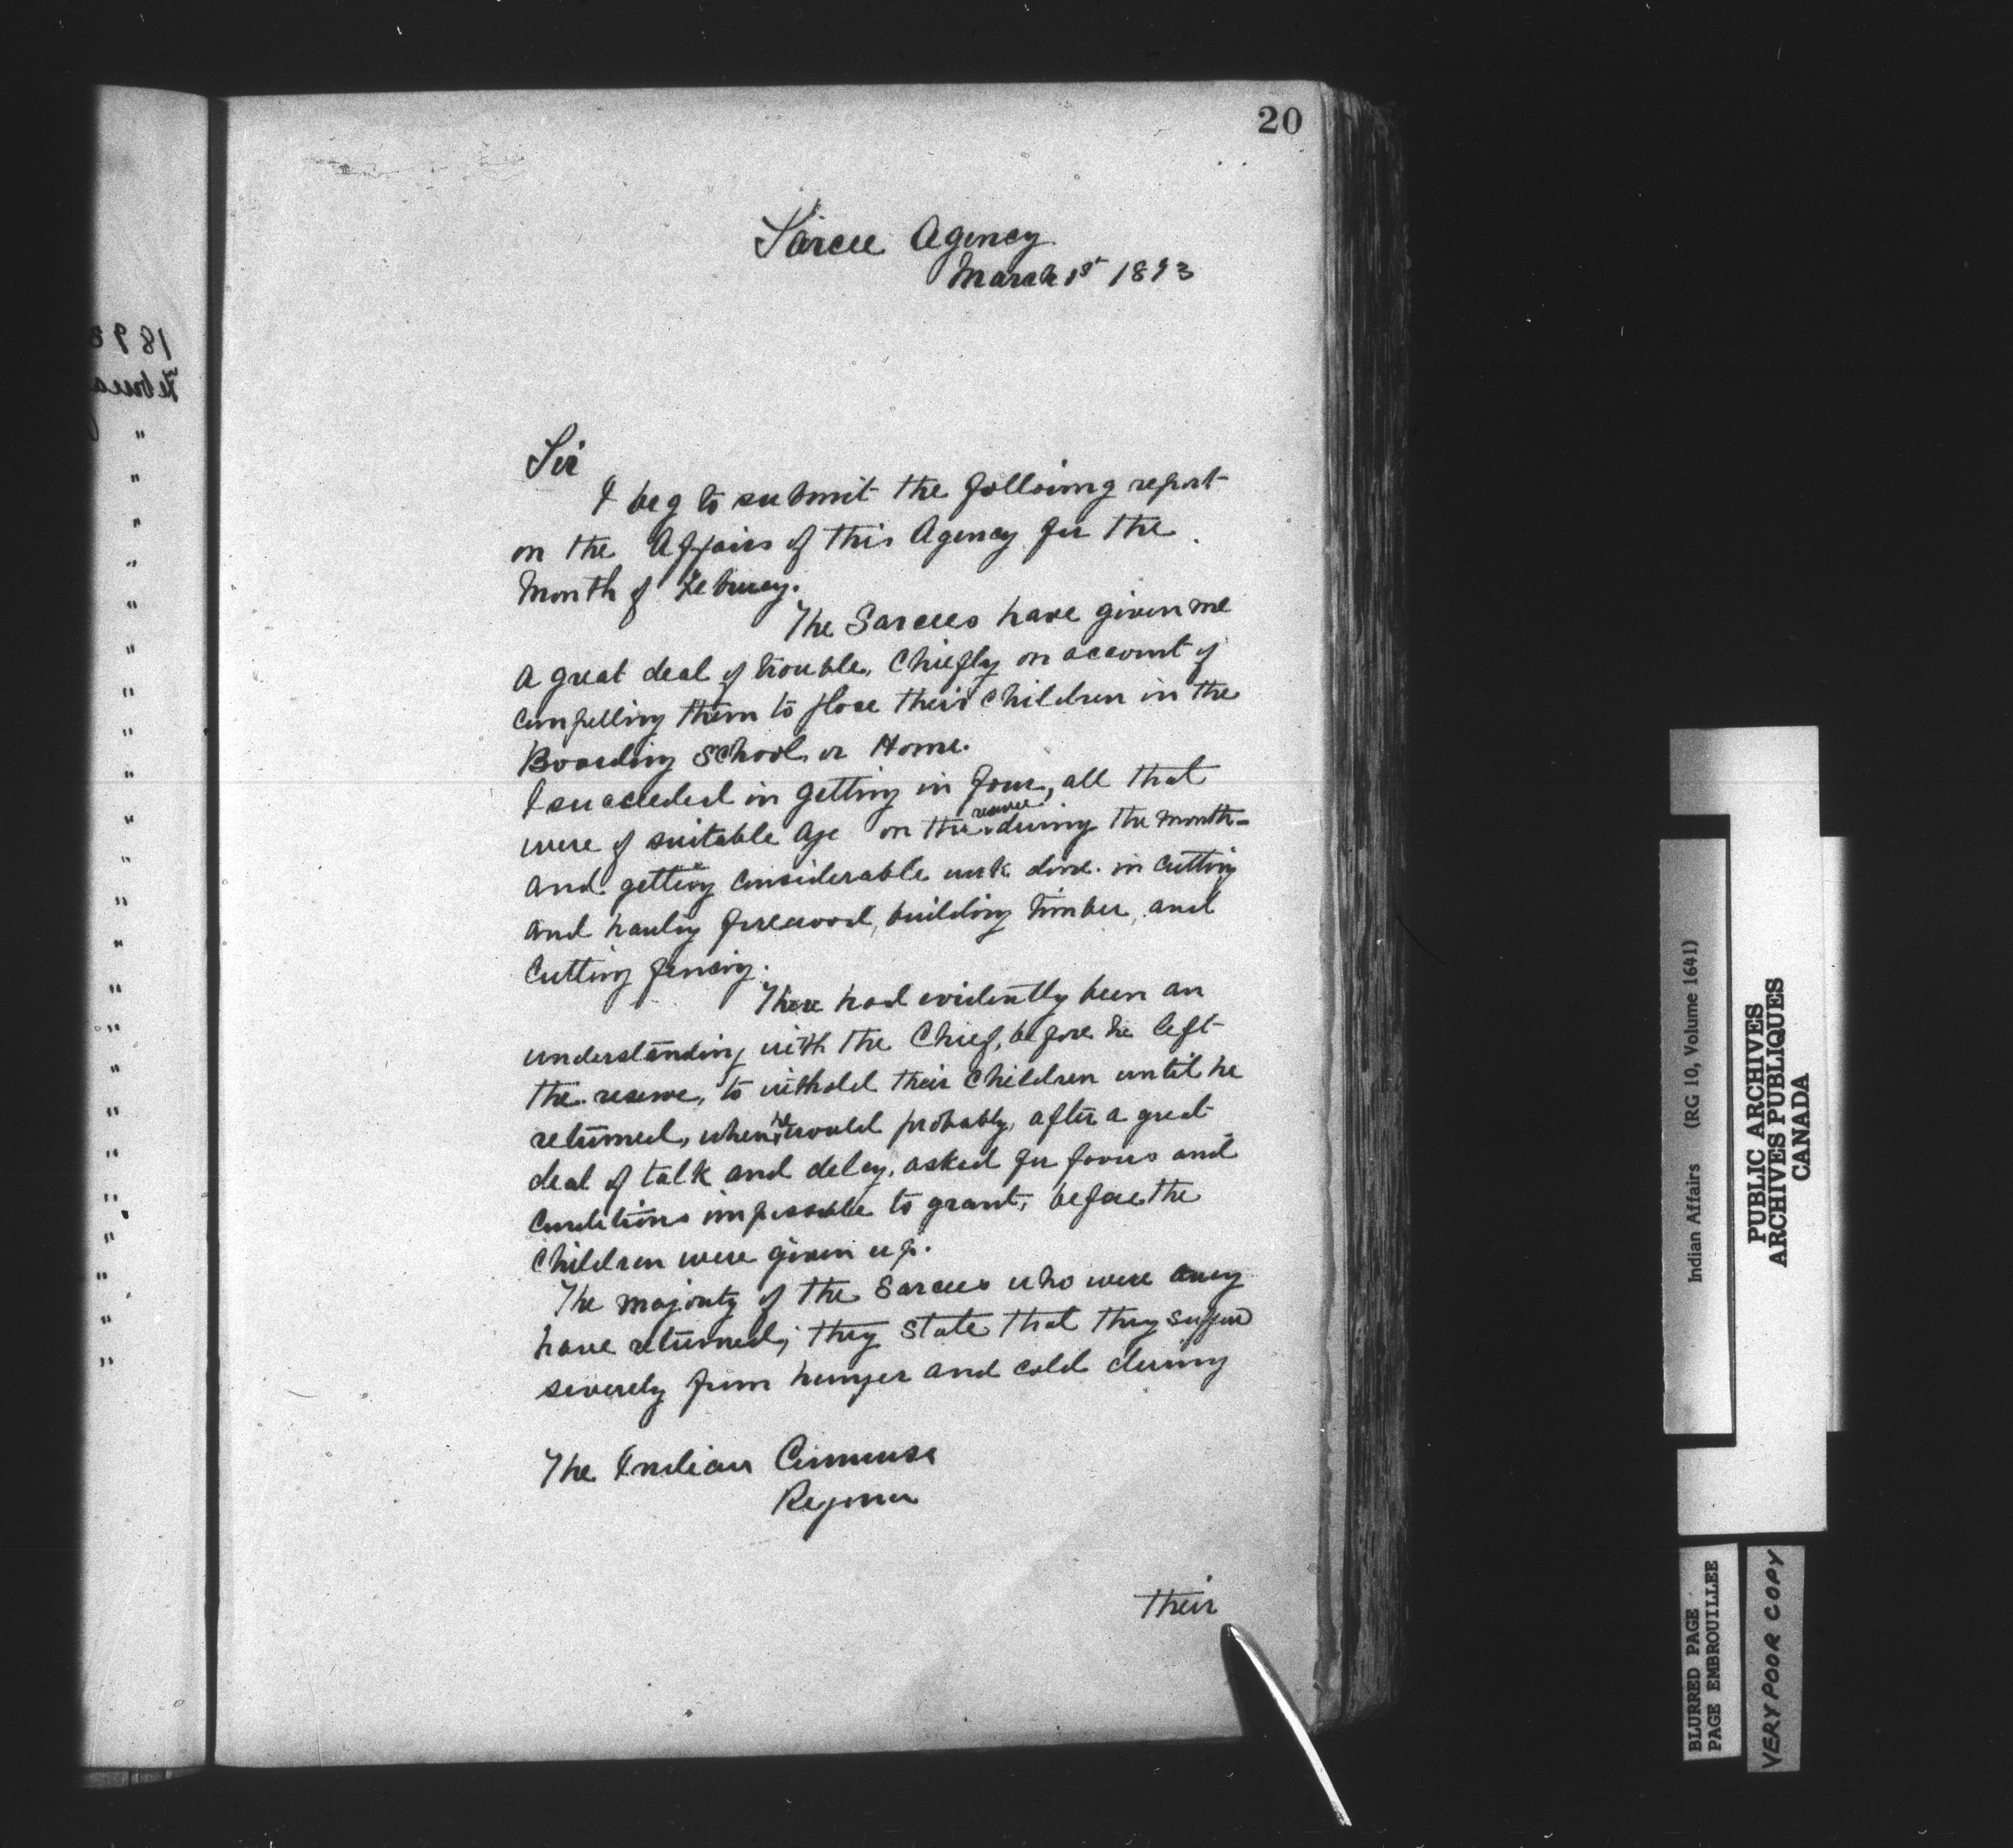 20
Sarcee Agency
March 1st 1893
Sir
I beg to submit the folloing report
on the Affairs of this Agency for the
Month of Februey.
The Sarcees have given me
a great deal of trouble, Chiefly on account of
compelling them to place their children in the
Boarding School or Home.
I succeeded in getting in four, all that
were of suitable age on the reserve during the month-
and getting considerable work done in cutting
and hauling firewood, building timber, and
Cutting fencing.
There had evidently been an
understanding with the Chief, before he left
the reserve, to withold their children until he
returned, when he would probably, after a great
deal of talk and delay, asked for favors and
Conditions impossible to grant, before the
Children were given up.
The majority of the Sarcees who were away
have returned; they state that they suffered
severely from hunger and cold during
The Indian Commissr
Regina
Their
189
Februa
Indian Affairs (RG 10, Volume 1641)
PUBLIC ARCHIVES
ARCHIVES PUBLIQUES
CANADA
BLURRED PAGE
PAGE EMBROUILLEE
VERY POOR COPY